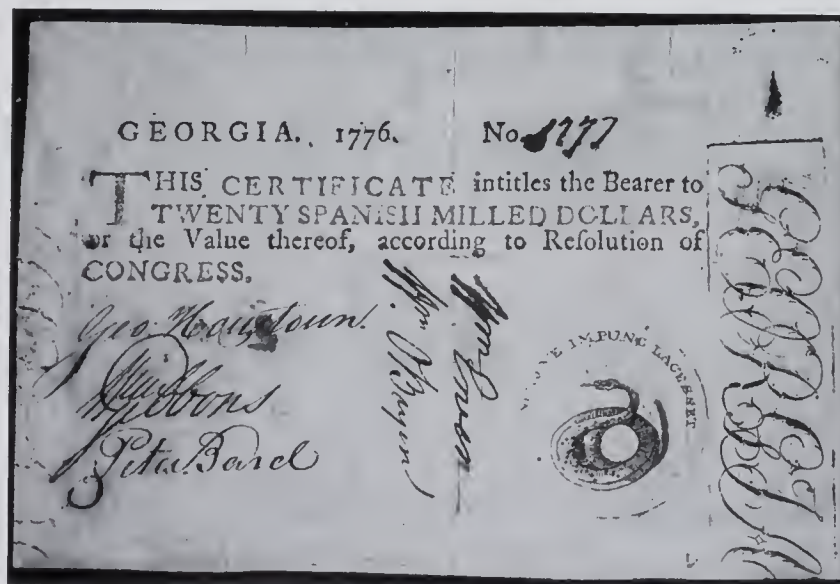 GEORGIA. 1776. No. 1277
THIS CERTIFICATE intitles the Bearer to
TWENTY SPANISH MILLED DOLLARS,
or the Value thereof, according to Resolution of
CONGRESS.
Geo. Houstoun.
Gibbons
Peter Bard
Wm. O'Bryen
Wm. Ewen
IMPUNE LACESSET
GEORGIA